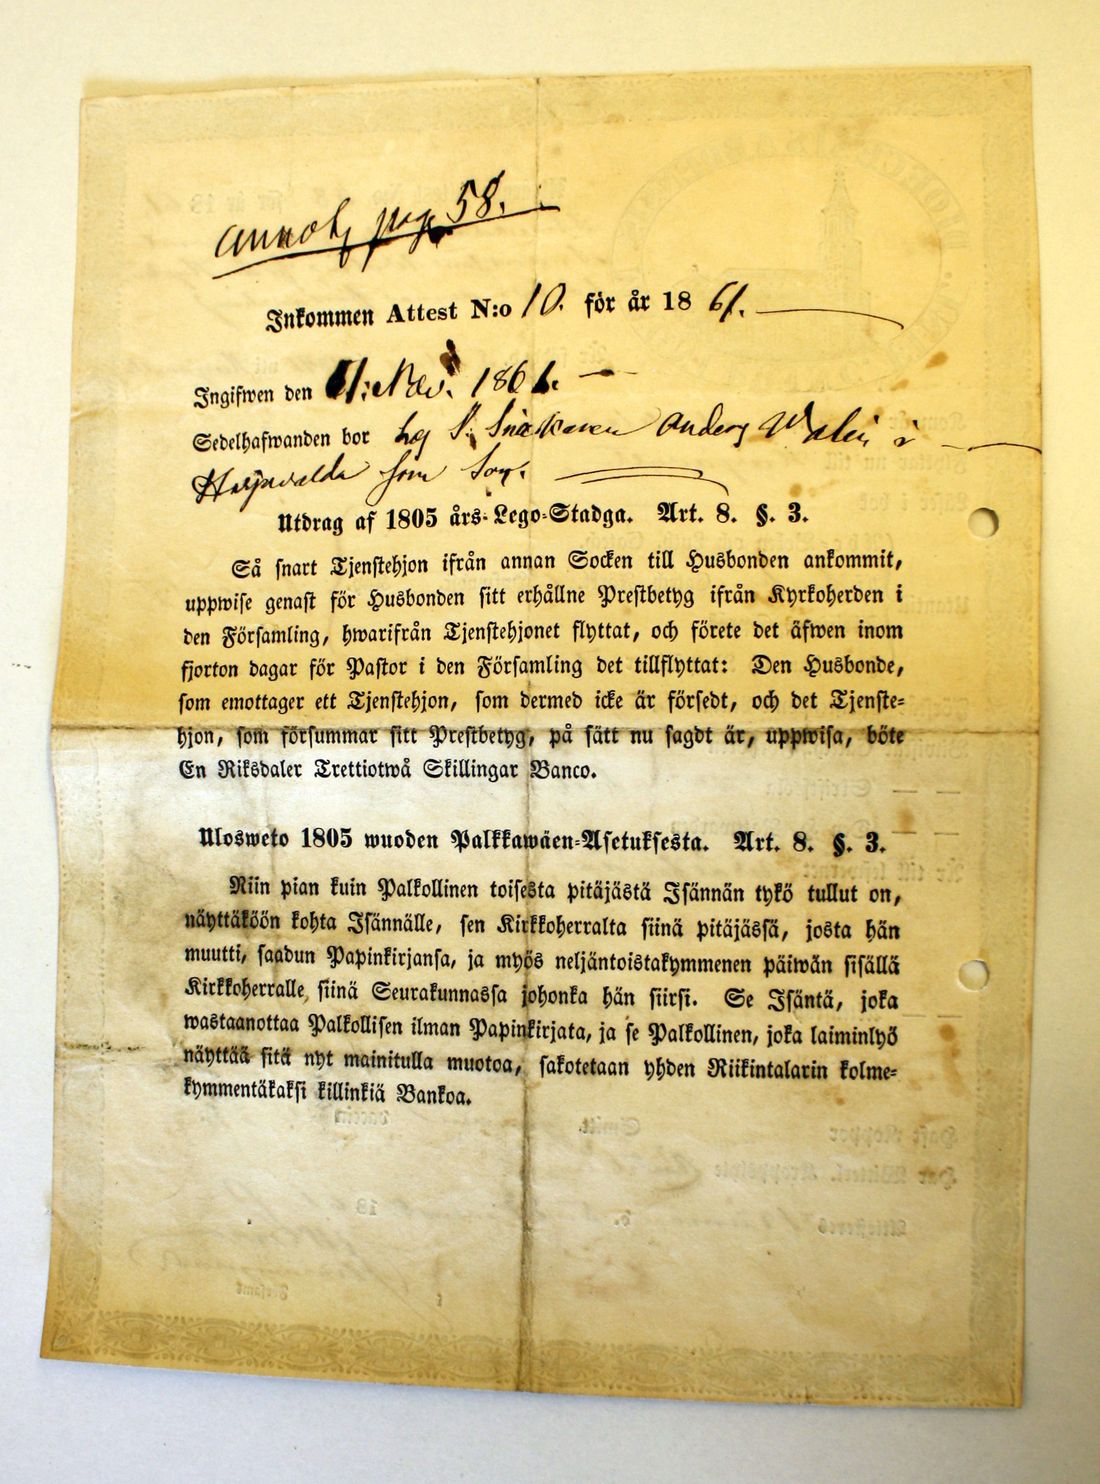 annot. pag. 58.
Inkommen Attest N:o 10. för år 1861.
Ingifwen den 1. Nov. 1861.
Sedelhafwanden bor hos S. Snickaren Anders Walin i
som
Utdrag af 1805 års-Lego-Stadga. Art. 8. §. 3.
Så snart Tjenstehjon ifrån annan Socken till Husbonden ankommit,
uppwise genast för Husbonden sitt erhållne Prestbetyg ifrån Kyrkoherden i
den Församling, hwarifrån Tjenstehjonet flyttat, och förete det äfwen inom
fjorton dagar för Pastor i den Församling det tillflyttat: Den Husbonde,
som emottager ett Tjenstehjon, som dermed icke är försedt, och det Tjenste-
hjon, som försummar sitt Prestbetyg, på sätt nu sagdt är, uppwisa, böte
En Riksdaler Trettiotwå Skillingar Banco.
Ulosweto 1805 wuoden Palkkawäen-Asetuksesta. Art. 8. §. 3.
Niin pian kuin Palkollinen toisesta pitäjästä Isännän tykö tullut on,
näyttäköön kohta Isännälle, sen Kirkkoherralta siinä pitäjässä, josta hän
muutti, saadun Papinkirjansa, ja myös neljäntoistakymmenen päiwän sisällä
Kirkkoherralle siinä Seurakunnassa johonka hän siirsi. Se Isäntä, joka
wastaanottaa Palkollisen ilman Papinkirjata, ja se Palkollinen, joka laiminlyö
näyttää sitä nyt mainitulla muotoa, sakotetaan yhden Riikintalarin kolme-
kymmentäkaksi killinkiä Bankoa.